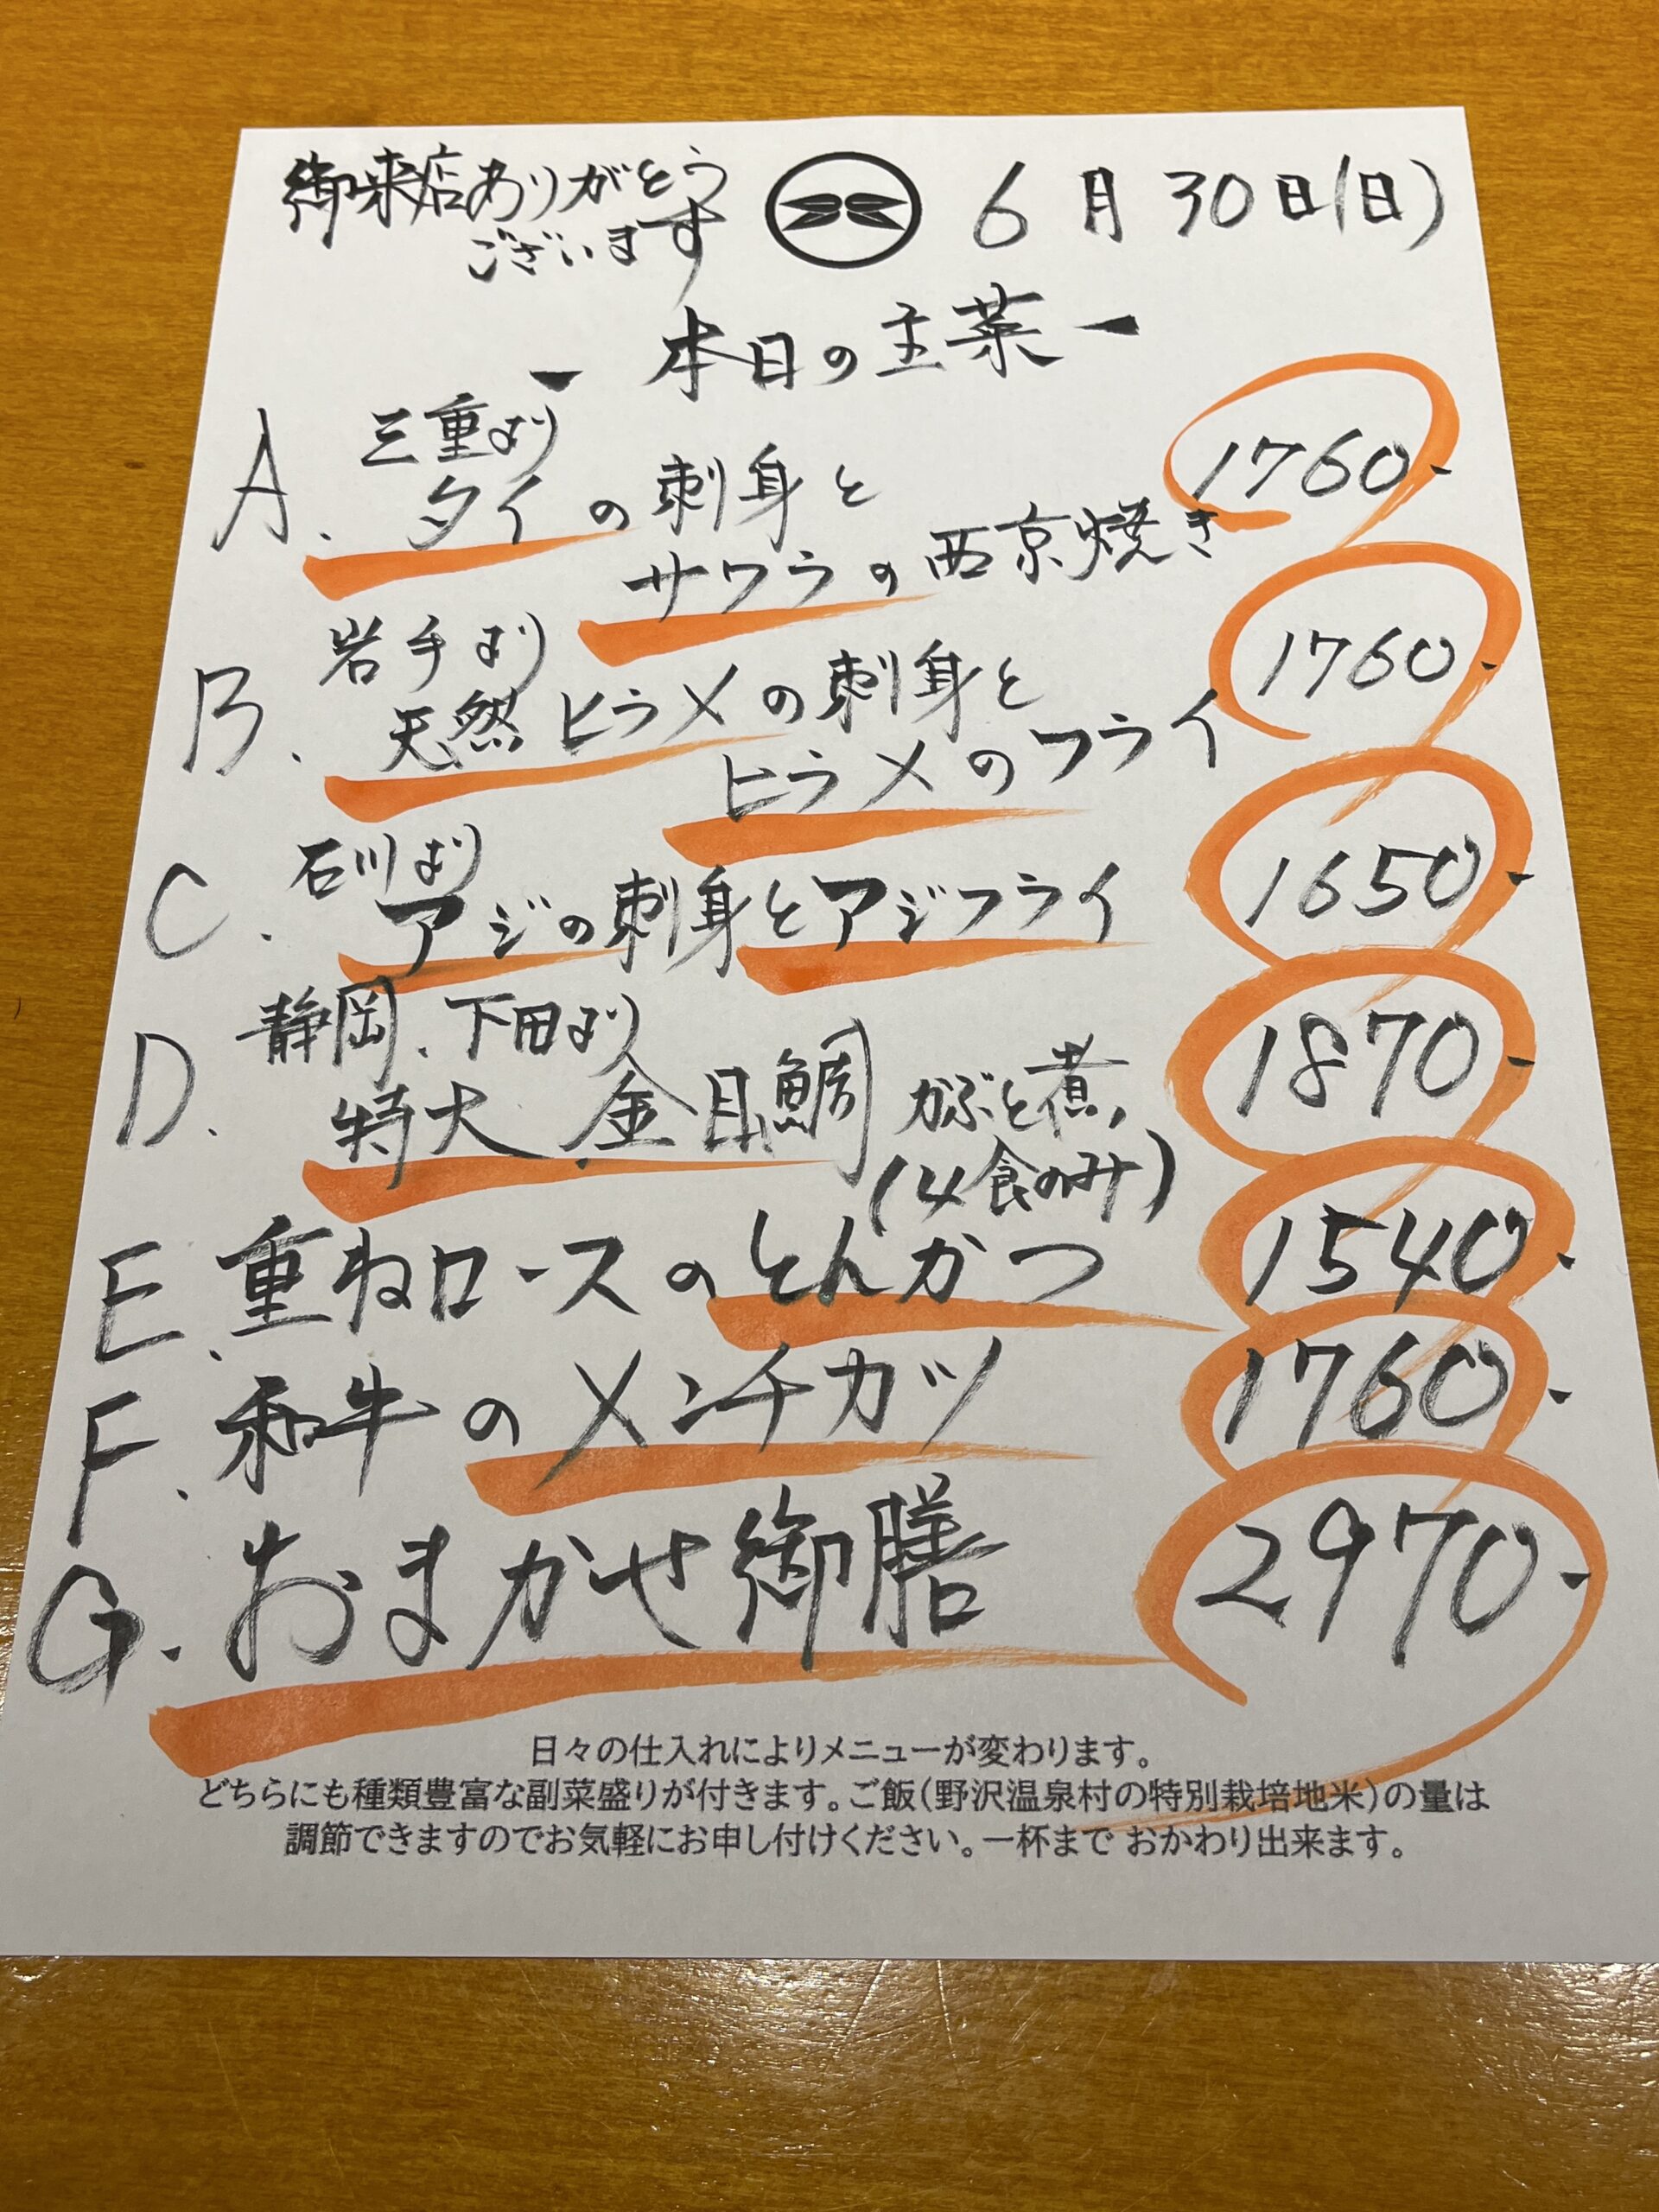 御来店ありがとう
ございます
6月30日(日)
ー 本日の主菜 ー
A. 三重より
タイの刺身と
サワラの西京焼き
1760-
B. 岩手より
天然ヒラメの刺身と
ヒラメのフライ
1760-
C. 石川より
アジの刺身とアジフライ
1650-
D. 静岡、下田より
特大 金目鯛 かぶと煮
(4食のみ)
1870-
E. 重ねロースのとんかつ
1540-
F. 和牛のメンチカツ
1760-
G. おまかせ御膳
2970-
日々の仕入れによりメニューが変わります。
どちらにも種類豊富な副菜盛りが付きます。ご飯(野沢温泉村の特別栽培地米)の量は
調節できますのでお気軽にお申し付けください。一杯まで おかわり出来ます。